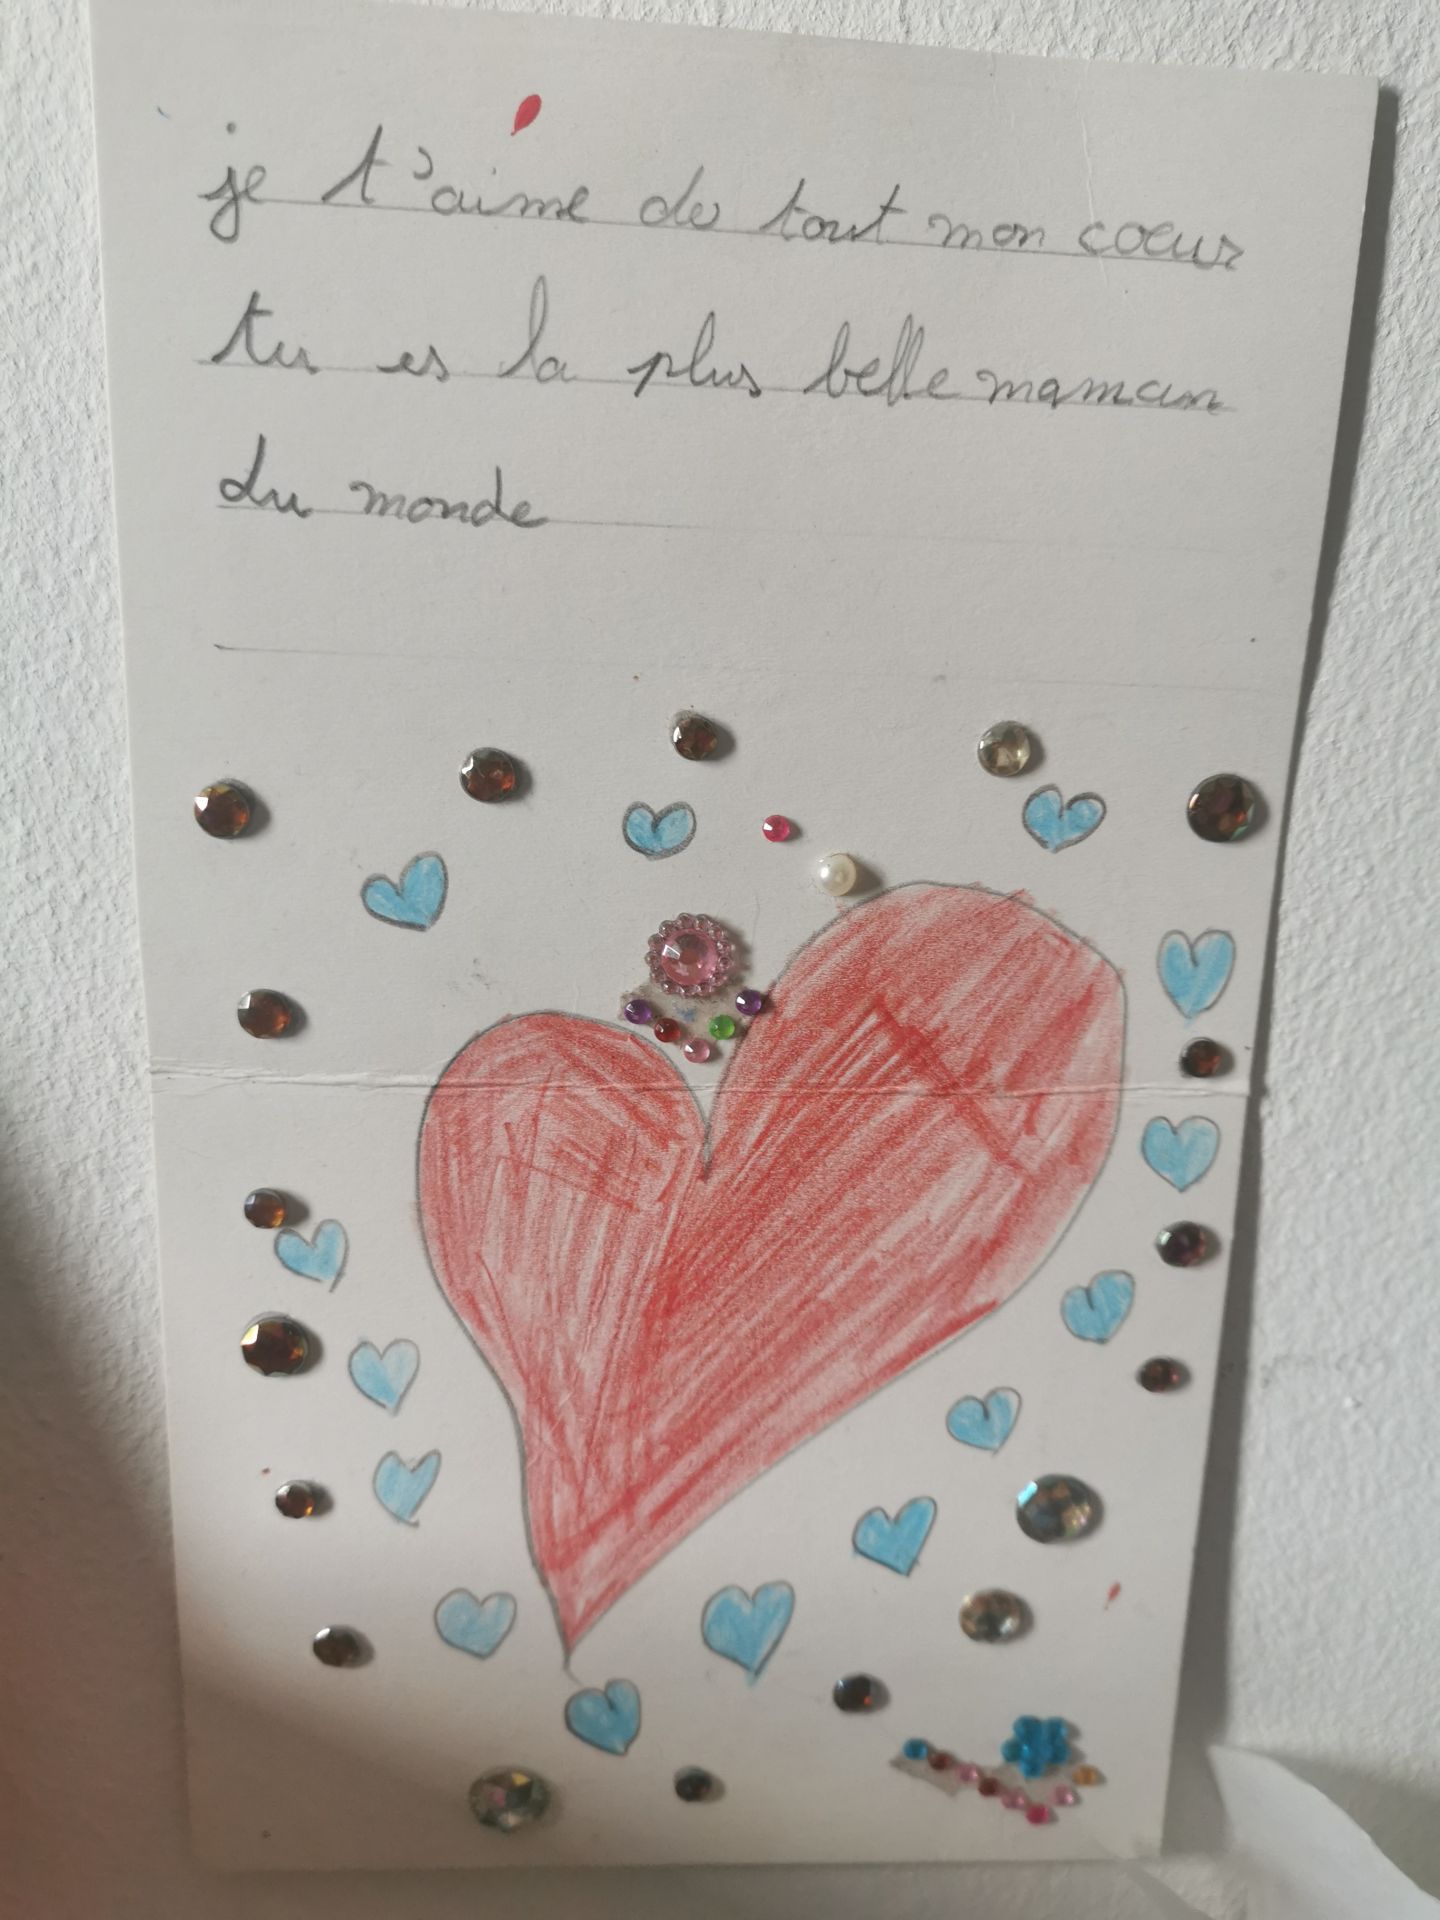 je t'aime de tout mon coeur
tu es la plus belle maman
du monde